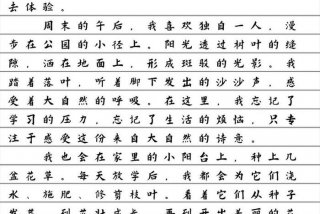 去体验。
周末的午后，我喜欢独自一人，漫
步在公园的小径上。阳光透过树叶的缝
隙，洒在地面上，形成斑驳的光影。我
踏着落叶，听着脚下发出的沙沙声，感
受着大自然的呼吸。在这里，我忘记了
学习的压力，忘记了生活的烦恼，只专
注于感受这份来自大自然的诗意。
我也会在家里的小阳台上，种上几
盆花草。每天放学后，我都会为它们浇
水、施肥、修剪枝叶。看着它们从种子
发芽，到茁壮成长，再到开出美丽的花